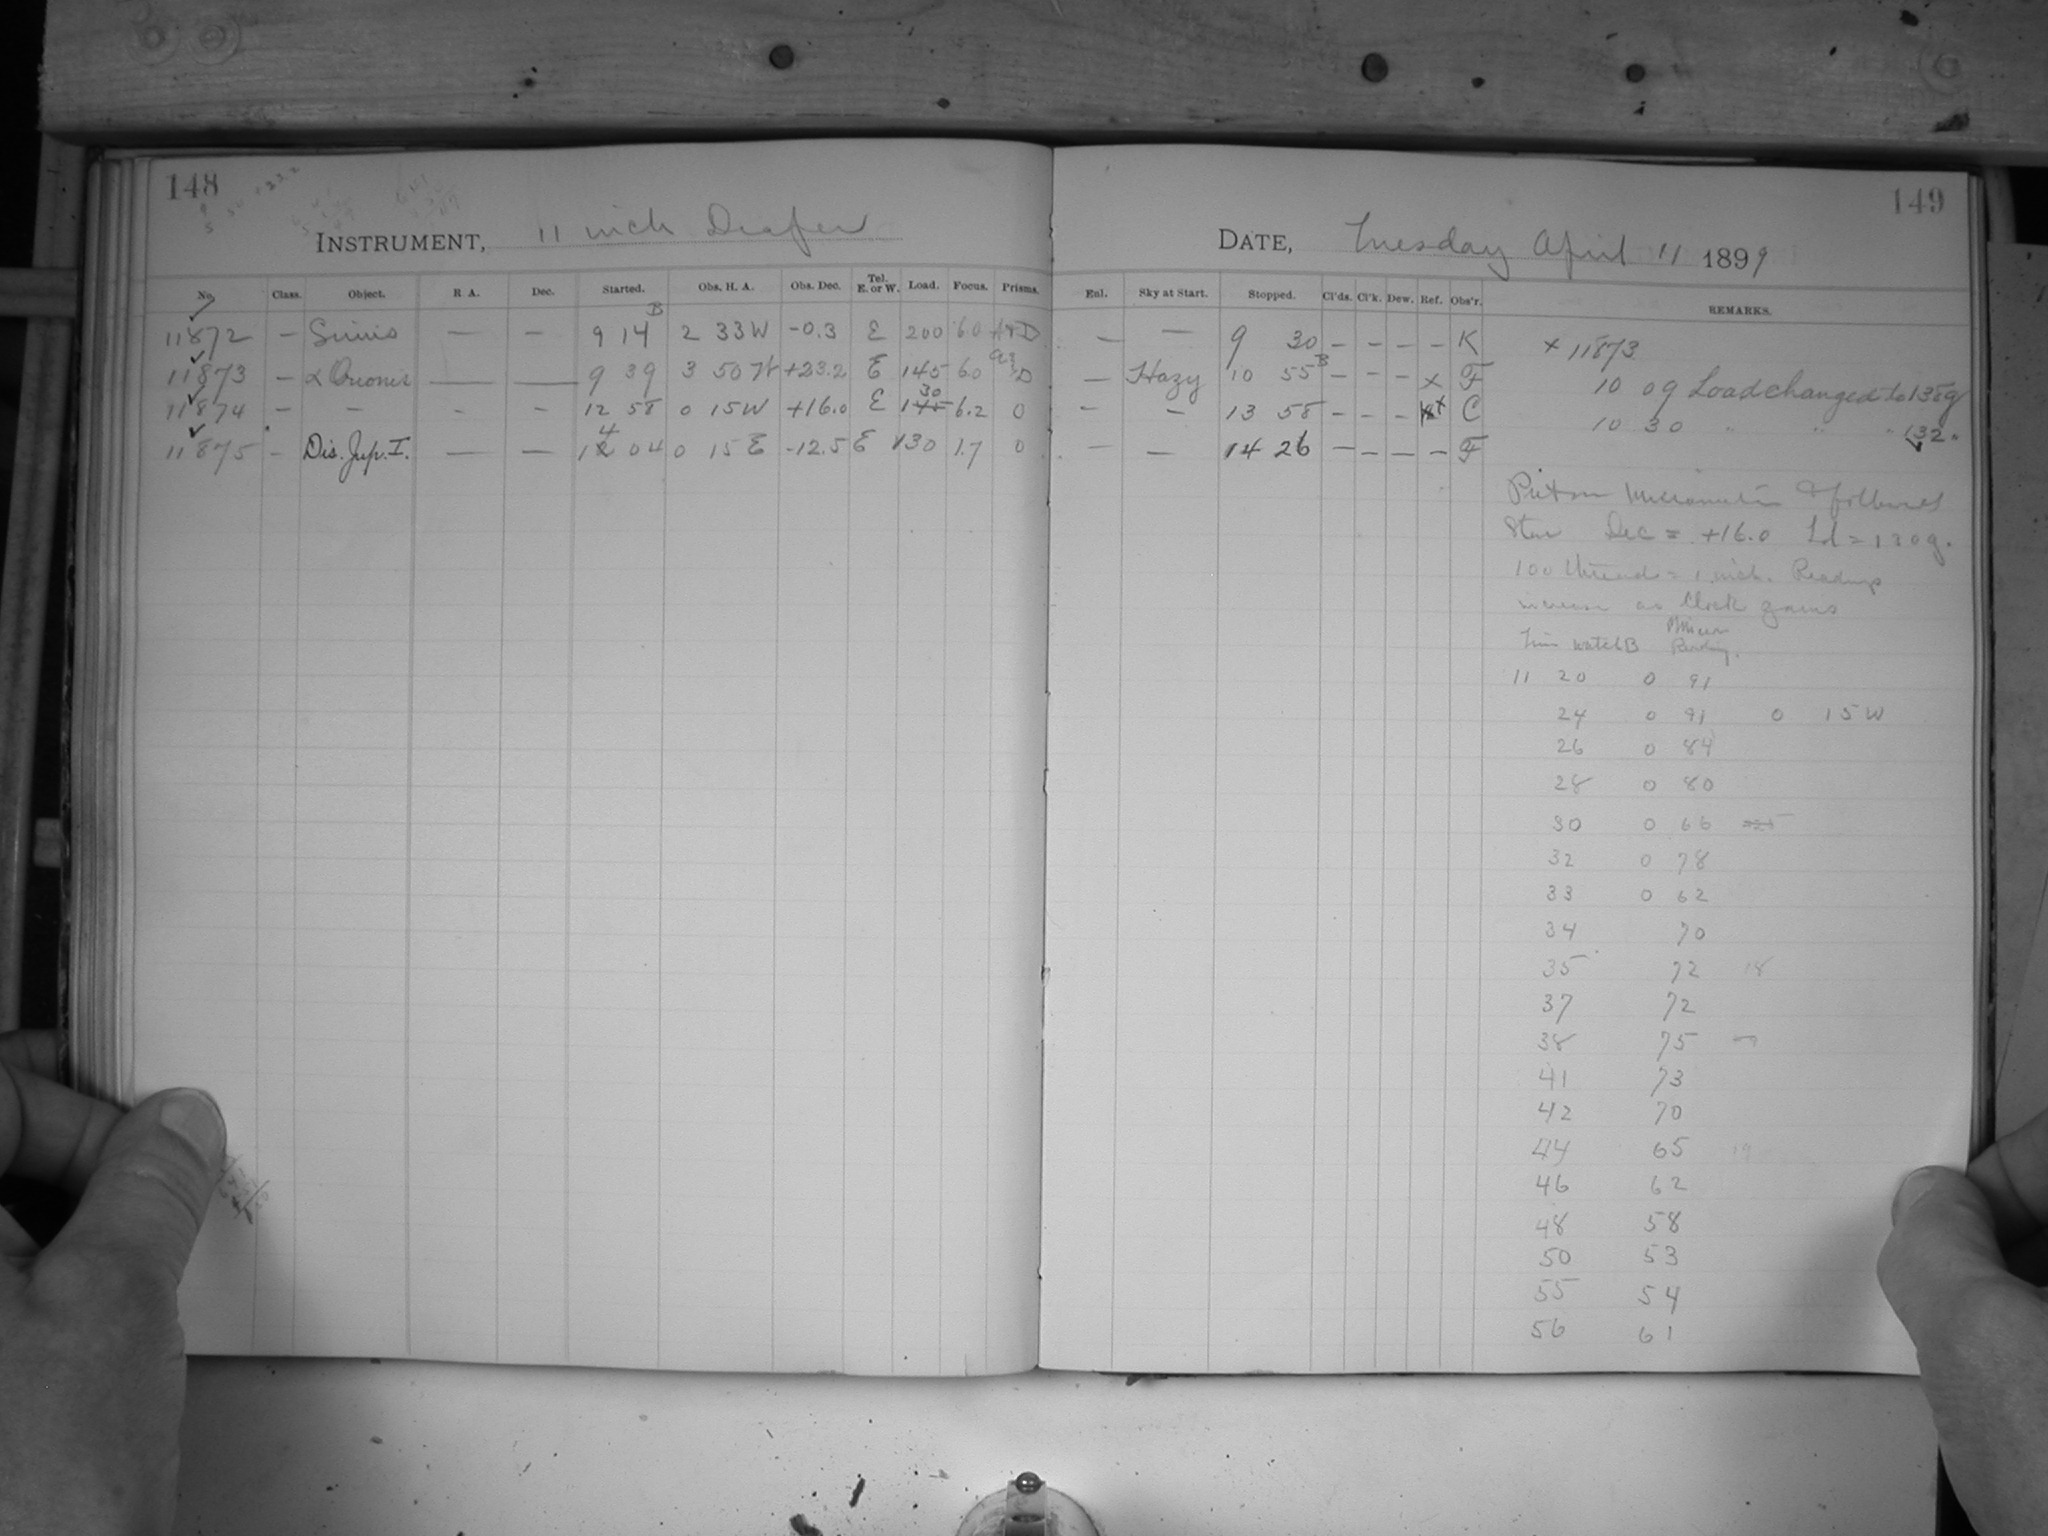 148
INSTRUMENT, 11 inch Draper
No. Class. Object. R.A. Dec. Started. Obs. H. A. Obs. Dec. Tel. E. or W. Load. Focus. Prisms.
11872 — Sirius — — 9 14 B 2 33 W -0.3 E 200 6.0
11873 — α Orionis — — 9 39 3 50 W +23.2 E 145 6.0
11874 — — - — 12 58 0 15 W +16.0 E 145 30 6.2 0
11875 — Dis. Jup. I. — — 14 04 0 15 E -12.5 E 130 1.7 0
149
DATE, Tuesday April 11 1899
Enl. Sky at Start. Stopped. Cl'ds. Cl'k. Dew. Ref. Obs'r. REMARKS.
— — 9 30 — — — — K
— Hazy 10 55 B — — — x F
— — 13 58 — — — x C
— — 14 26 — — — — F
x 11873
10 09 Load changed to 138g
10 30 " " " 132 "
Put on Micrometer & followed
Star Dec = +16.0 Ld = 130g.
100 threads = 1 inch. Readings
increase as Clock gains
Time Watch B Microm Reading.
11 20 0 91
24 0 91 0 15 W
26 0 84
28 0 80
30 0 66
32 0 78
33 0 62
34 70
35 72 18
37 72
38 75
41 73
42 70
44 65
46 62
48 58
50 53
55 54
56 61